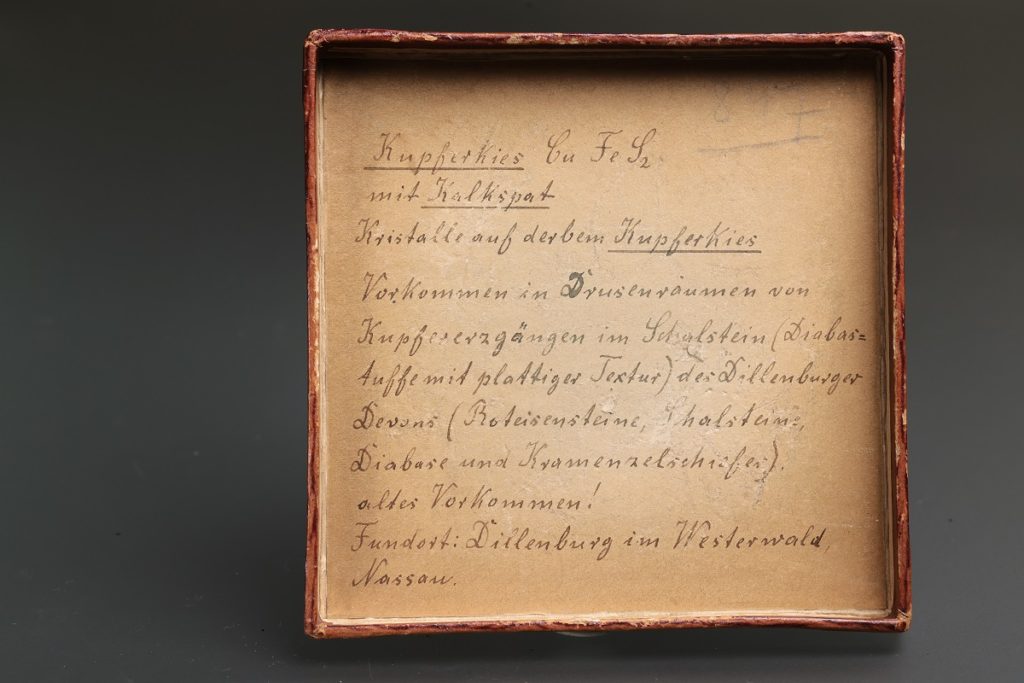 Kupferkies Cu Fe S2
mit Kalkspat
Kristalle auf derbem Kupferkies
Vorkommen in Drusenräumen von
Kupfererzgängen im Schalstein (Diabas=
tuffe mit plattiger Textur) des Dillenburger
Devons (Roteisensteine, Schalsteine,
Diabase und Kramenzelschiefer).
altes Vorkommen!
Fundort: Dillenburg im Westerwald,
Nassau.